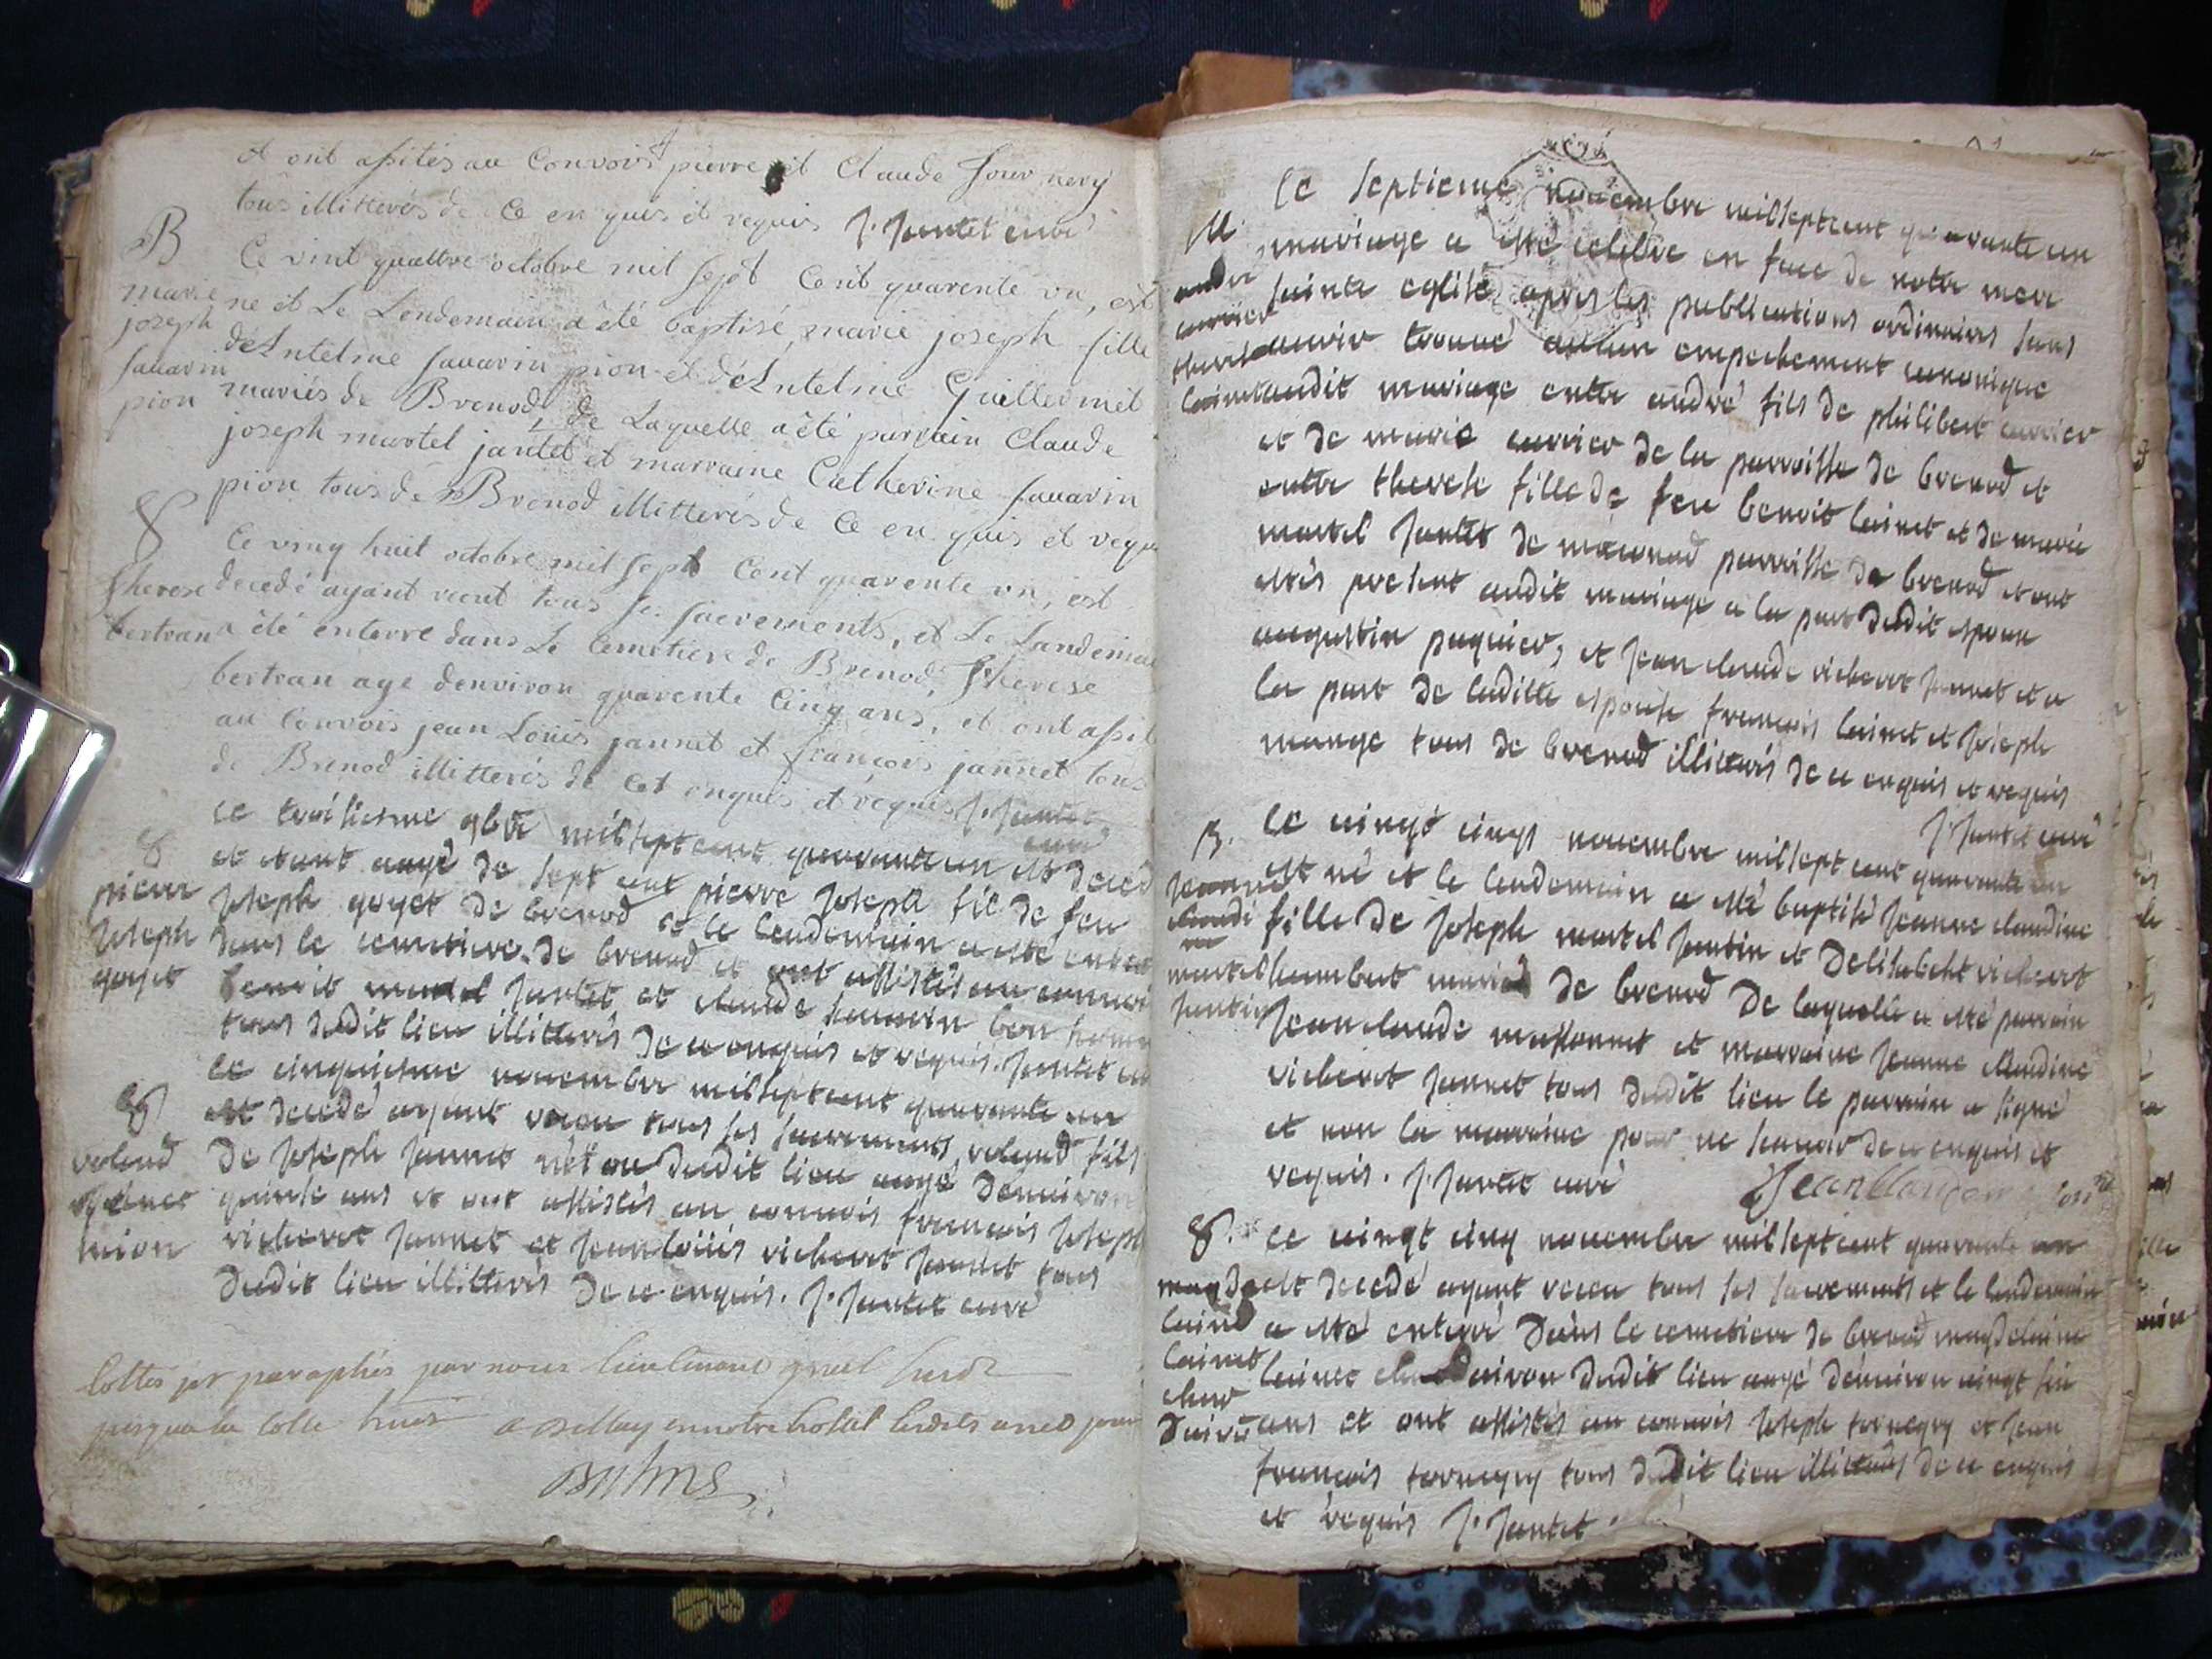 et ont assités au Convois pierre et Claude Tournery
tous illitterés de Ce en quis et requis J. Jantet curé
B
marie
joseph
savarin
pion
Ce vint quattre octobre mil sept Cent quarente un, est
ne et Le Lendemain a été baptisé, marie joseph fille
deAntelme savarin pion et deAntelme Guillermet
mariés de Brenod, de Laquelle a été parrain Claude
joseph martel jantet et marraine Catherine savarin
pion tous de Brenod illitterés de Ce en quis et requ
Therese
bertran
Ce ving huit octobre mil sept Cent quarente un, est
decedé ayant recut tous ses sacrements, et Le Landemai
a été enterré dans Le Cemetiere de Brenod, Therese
bertran age denviron quarente Cinq ans, et ont assit
au Convois jean Loüis jannet et francois jannet tous
de Brenod illitterés de Cet enquis et requis J. Jantet
curé
pierre
Joseph
goyet
Le troisiesme 9bre milseptcent quarante un est deced
et etant aagé de sept ans pierre Joseph fil de feu
Joseph goyet de brenod et le lendemain a esté enterr
dans le cemetiere de brenod et ont assistés au convoi
benoit martel Jantet et claude sauarin bon homme
tous dudit lieu illitterés de ce enquis et requis. Jantet cu
roland
Jannet
Le cinquiesme nouembre milseptcent quarante un
est decedé ayant receu tous ses sacrements roland fils
de Joseph Jannet dudit lieu aagé denuiron
quinse ans et ont assistés au conuois francois Joseph
richerot Jannet et Jean loüis richerot Jannet tous
dudit lieu illitterés de ce enquis. J. Jantet curé
Cottés et paraphés par nous lieutenant
jusqua la Cotte huit a Bellay en notre hostel
M
andré
carrier
therese
lainet
Le septieme nouembre milseptcent quarante un
mariage a esté celebré en face de notre mere
sainte eglise apres les publications ordinaires sans
auoir trouué aucun empechement canonique
audit mariage entre andré fils de philibert carrier
et de marie carrier de la parroisse de brenod et
entre therese fille de feu benoit lainet et de marie
martel Jantet de parroisse de brenod et ont
estés present audit mariage a la part dudit espoux
augustin paquier, et Jean claude richerot Jannet et a
la part de laditte espouse francois lainet et Joseph
monge tous de brenod illitterés de ce enquis et requis
J. Jantet curé
B.
Jeanne
claudi
ne
martel
Jantin
Le uingt cinqs nouembre milsept cent quarante un
est né et le lendemain a esté baptisé Jeanne claudine
fille de Joseph martel Jantin et delisabeht richerot
humbert mariés de brenod de laquelle a esté parrain
Jean claude massonnet et marraine Jeanne claudine
richerot Jannet tous dudit lieu le parrain a signé
et non la marraine pour ne scauoir de ce enquis et
requis. J. Jantet curé
magde
laine
lainet
Ce uingt cinq nouembre milseptcent quarante un
est decedé ayant receu tous ses sacrements et le lendemain
a esté enterré dans le cemetiere de brenod magdelaine
lainet dudit lieu aagé denuiron uingt six
ans et ont assistés au conuois Joseph tornegry et Jean
francois tornegry tous dudit lieu illitterés de ce enquis
et requis J. Jantet.